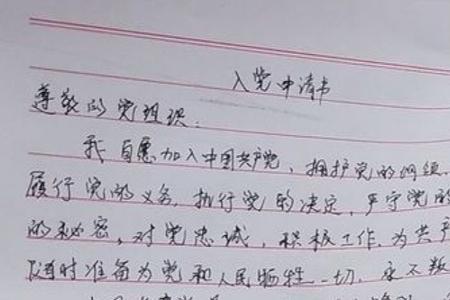 入党申请书
尊敬的党组织:
我自愿加入中国共产党,拥护党的纲领
履行党的义务,执行党的决定,严守党的
的秘密,对党忠诚,积极工作,为共产
随时准备为党和人民牺牲一切,永不叛